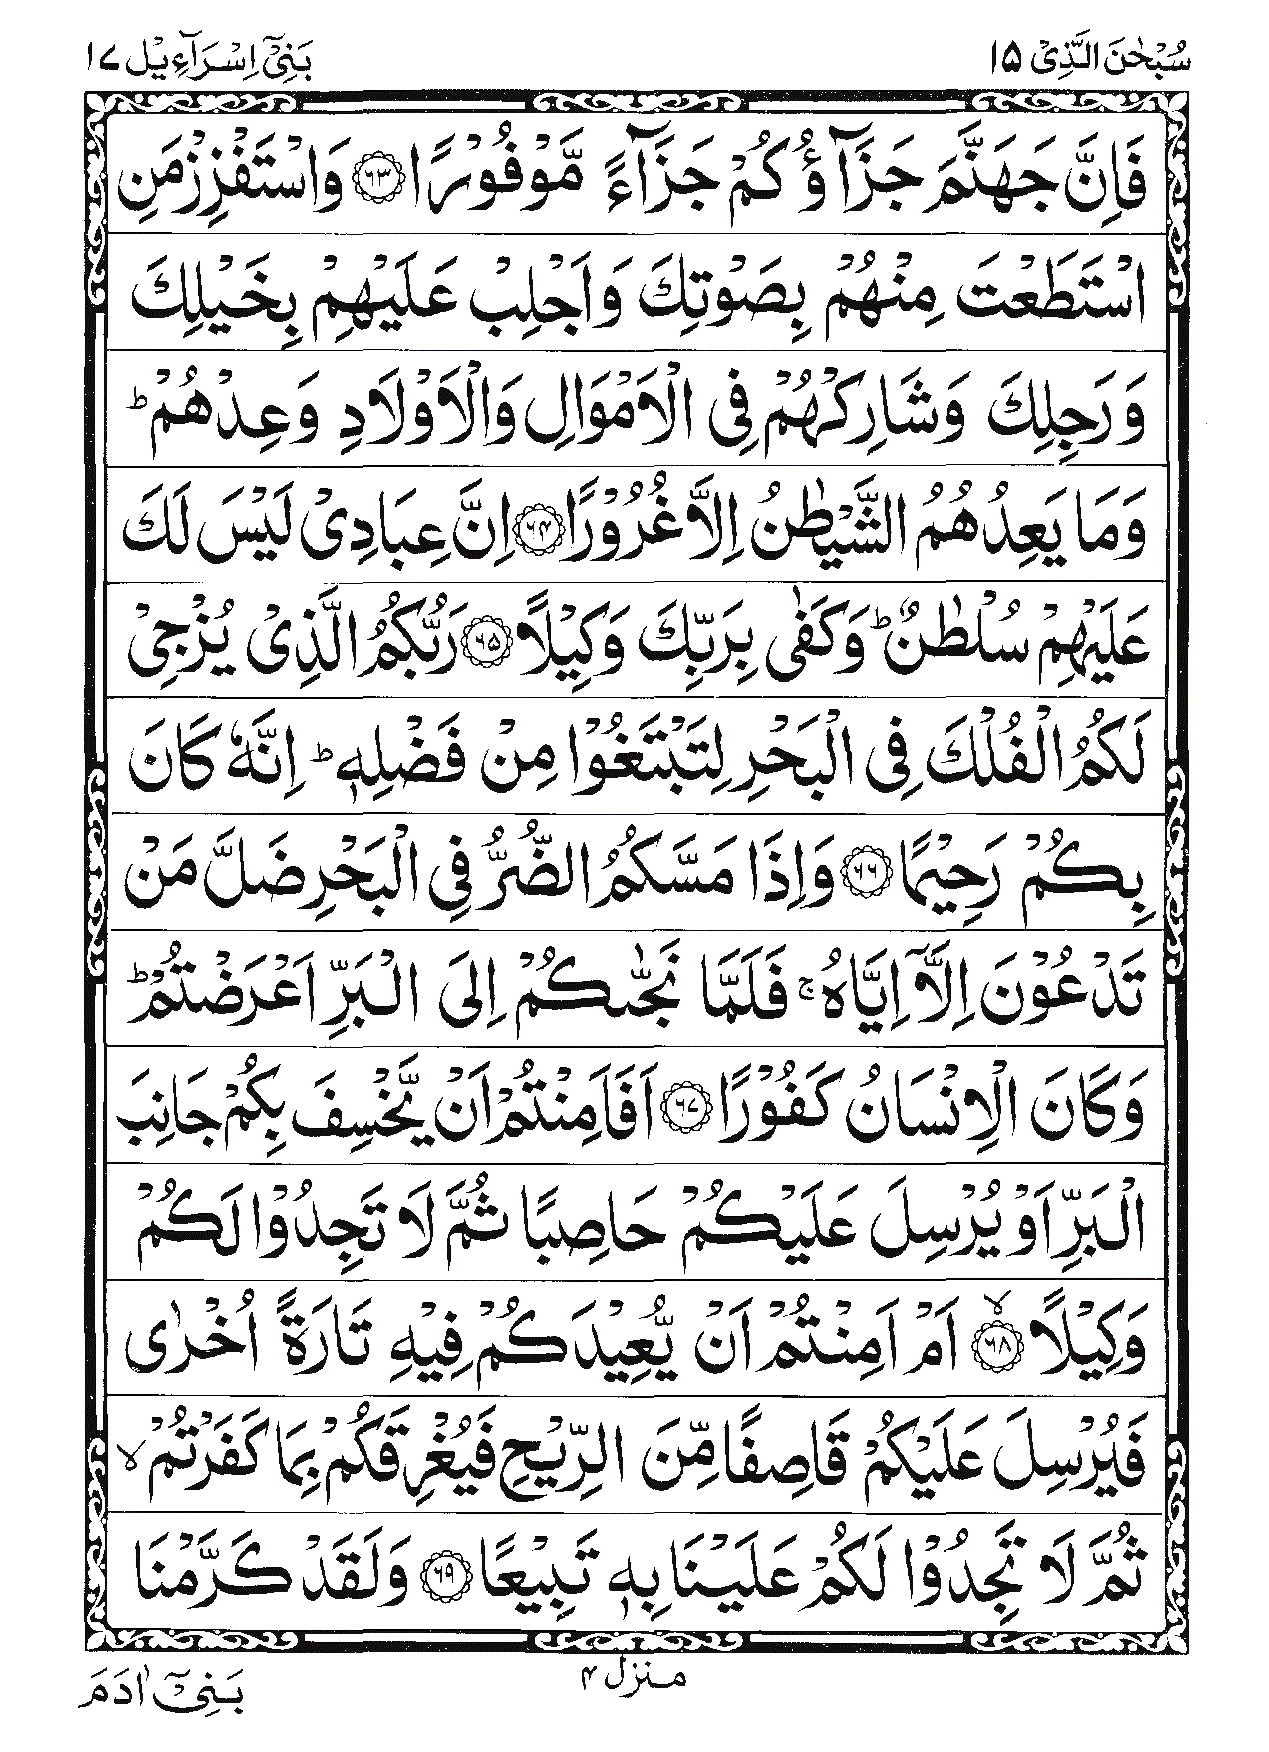 سُبْحٰنَ الَّذِیْ ۱۵
بَنِیْۤ اِسْرَآءِیْل ۱۷
فَاِنَّ جَهَنَّمَ جَزَآؤُكُمْ جَزَآءً مَّوْفُوْرًا ﴿۶۳﴾ وَاسْتَفْزِزْ مَنِ
اسْتَطَعْتَ مِنْهُمْ بِصَوْتِكَ وَاَجْلِبْ عَلَیْهِمْ بِخَیْلِكَ
وَرَجِلِكَ وَشَارِكْهُمْ فِی الْاَمْوَالِ وَالْاَوْلَادِ وَعِدْهُمْ ؕ
وَمَا یَعِدُهُمُ الشَّیْطٰنُ اِلَّا غُرُوْرًا ﴿۶۴﴾ اِنَّ عِبَادِیْ لَیْسَ لَكَ
عَلَیْهِمْ سُلْطٰنٌ ؕ وَكَفٰی بِرَبِّكَ وَكِیْلًا ﴿۶۵﴾ رَبُّكُمُ الَّذِیْ یُزْجِیْ
لَكُمُ الْفُلْكَ فِی الْبَحْرِ لِتَبْتَغُوْا مِنْ فَضْلِهٖ ؕ اِنَّهٗ كَانَ
بِكُمْ رَحِیْمًا ﴿۶۶﴾ وَاِذَا مَسَّكُمُ الضُّرُّ فِی الْبَحْرِ ضَلَّ مَنْ
تَدْعُوْنَ اِلَّاۤ اِیَّاهُ ۚ فَلَمَّا نَجّٰىكُمْ اِلَی الْبَرِّ اَعْرَضْتُمْ ؕ
وَكَانَ الْاِنْسَانُ كَفُوْرًا ﴿۶۷﴾ اَفَاَمِنْتُمْ اَنْ یَّخْسِفَ بِكُمْ جَانِبَ
الْبَرِّ اَوْ یُرْسِلَ عَلَیْكُمْ حَاصِبًا ثُمَّ لَا تَجِدُوْا لَكُمْ
وَكِیْلًا ﴿۶۸﴾ ۙ اَمْ اَمِنْتُمْ اَنْ یُّعِیْدَكُمْ فِیْهِ تَارَةً اُخْرٰی
فَیُرْسِلَ عَلَیْكُمْ قَاصِفًا مِّنَ الرِّیْحِ فَیُغْرِقَكُمْ بِمَا كَفَرْتُمْ ۙ
ثُمَّ لَا تَجِدُوْا لَكُمْ عَلَیْنَا بِهٖ تَبِیْعًا ﴿۶۹﴾ وَلَقَدْ كَرَّمْنَا
منزل ۴
بَنِیْۤ اٰدَمَ